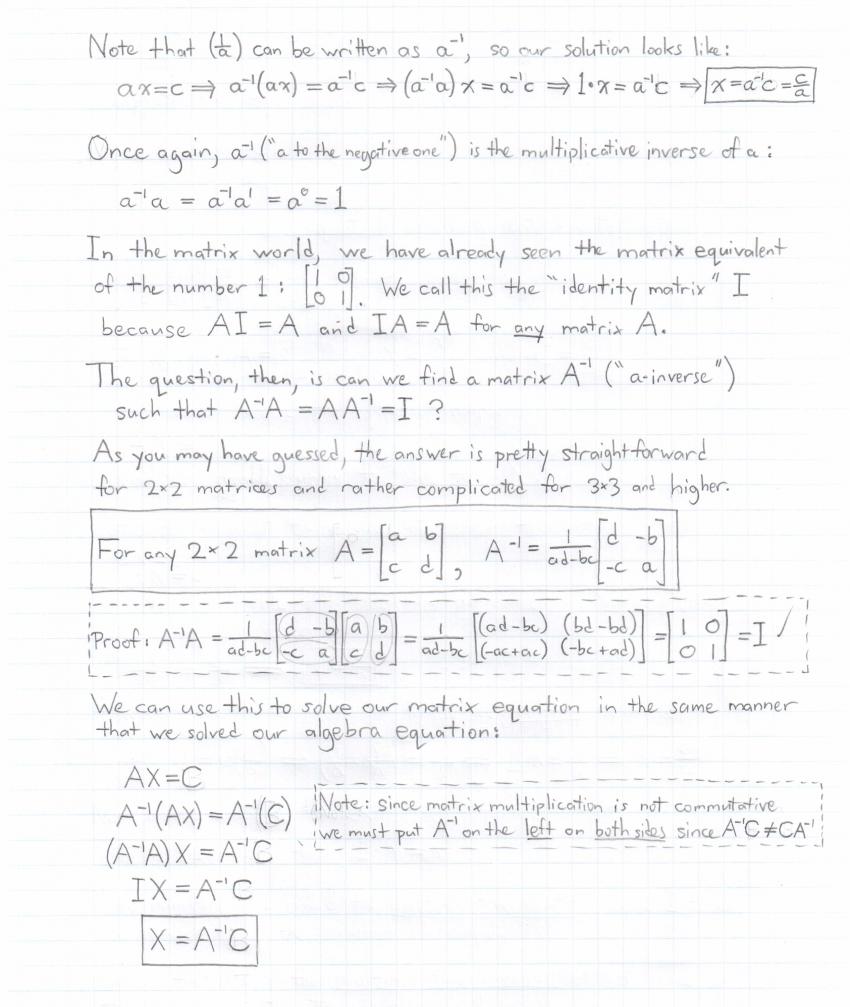 Note that (1/a) can be written as a⁻¹, so our solution looks like:
ax=c ⟹ a⁻¹(ax) = a⁻¹c ⟹ (a⁻¹a) x = a⁻¹c ⟹ 1•x = a⁻¹c ⟹ x=a⁻¹c = c/a
Once again, a⁻¹ ("a to the negative one") is the multiplicative inverse of a :
a⁻¹a = a⁻¹a¹ = a⁰ = 1
In the matrix world, we have already seen the matrix equivalent
of the number 1 : [1 0; 0 1]. We call this the "identity matrix" I
because AI = A and IA = A for any matrix A.
The question, then, is can we find a matrix A⁻¹ ("a-inverse")
such that A⁻¹A = AA⁻¹ = I ?
As you may have guessed, the answer is pretty straightforward
for 2×2 matrices and rather complicated for 3×3 and higher.
For any 2×2 matrix A = [a b; c d], A⁻¹ = 1/(ad-bc) [d -b; -c a]
Proof: A⁻¹A = 1/(ad-bc) [d -b; -c a] [a b; c d] = 1/(ad-bc) [(ad-bc) (bd-bd); (-ac+ac) (-bc+ad)] = [1 0; 0 1] = I ✓
We can use this to solve our matrix equation in the same manner
that we solved our algebra equation:
AX=C
A⁻¹(AX) = A⁻¹(C)
(A⁻¹A) X = A⁻¹C
IX = A⁻¹C
X = A⁻¹C
Note: since matrix multiplication is not commutative
we must put A⁻¹ on the left on both sides since A⁻¹C ≠ CA⁻¹